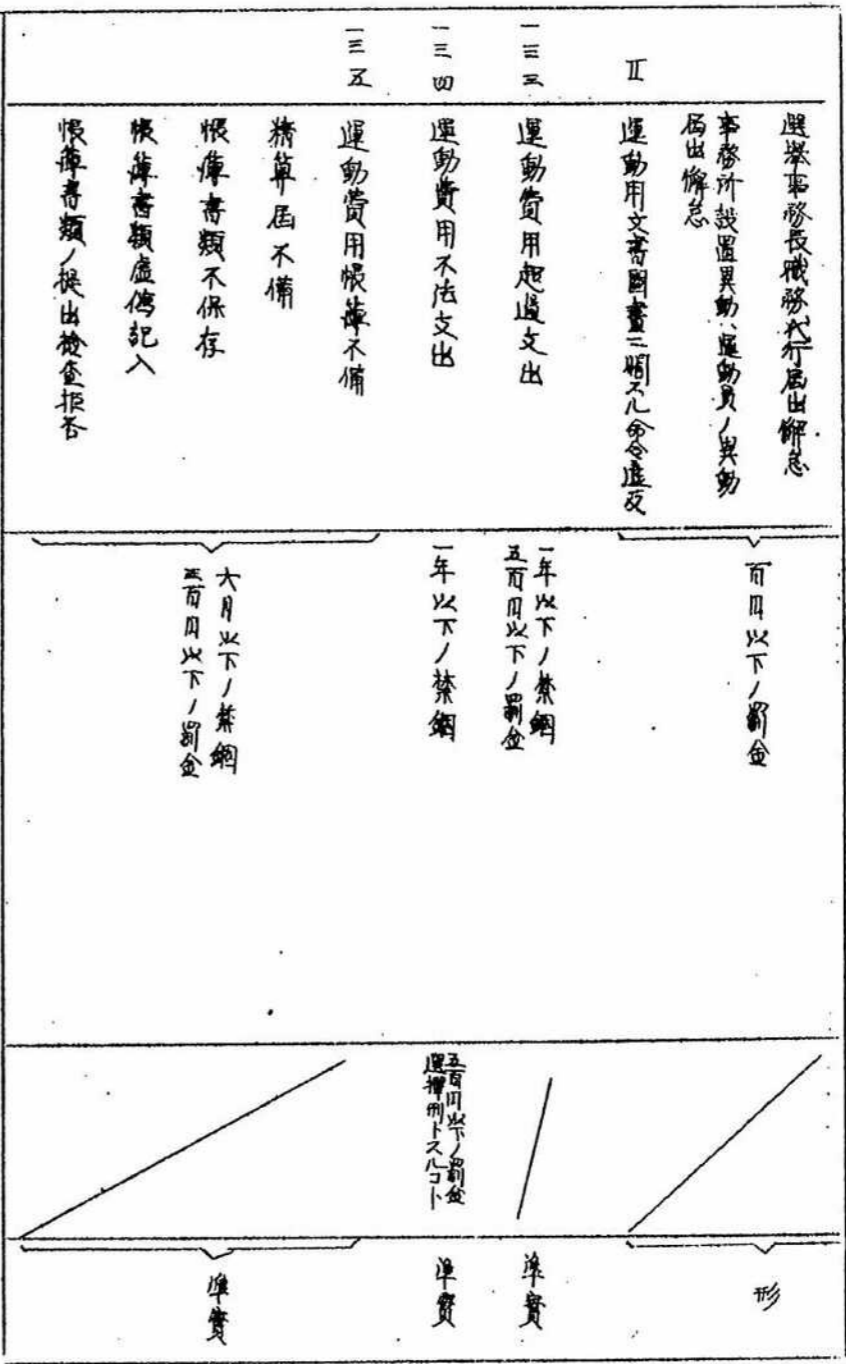 選挙事務長職務代行届出懈怠
事務所設置異動、運動員ノ異動
届出懈怠
Ⅱ
運動用文書図畫ニ関スル命令違反
百円以下ノ罰金
形
一三三
運動費用超過支出
一年以下ノ禁錮
五百円以下ノ罰金
準實
一三四
運動費用不法支出
一年以下ノ禁錮
五百円以下ノ罰金
選擇刑トスルコト
準實
一三五
運動費用帳簿不備
精算届不備
帳簿書類不保存
帳簿書類虚偽記入
帳簿書類ノ提出検査拒否
六月以下ノ禁錮
三百円以下ノ罰金
準實